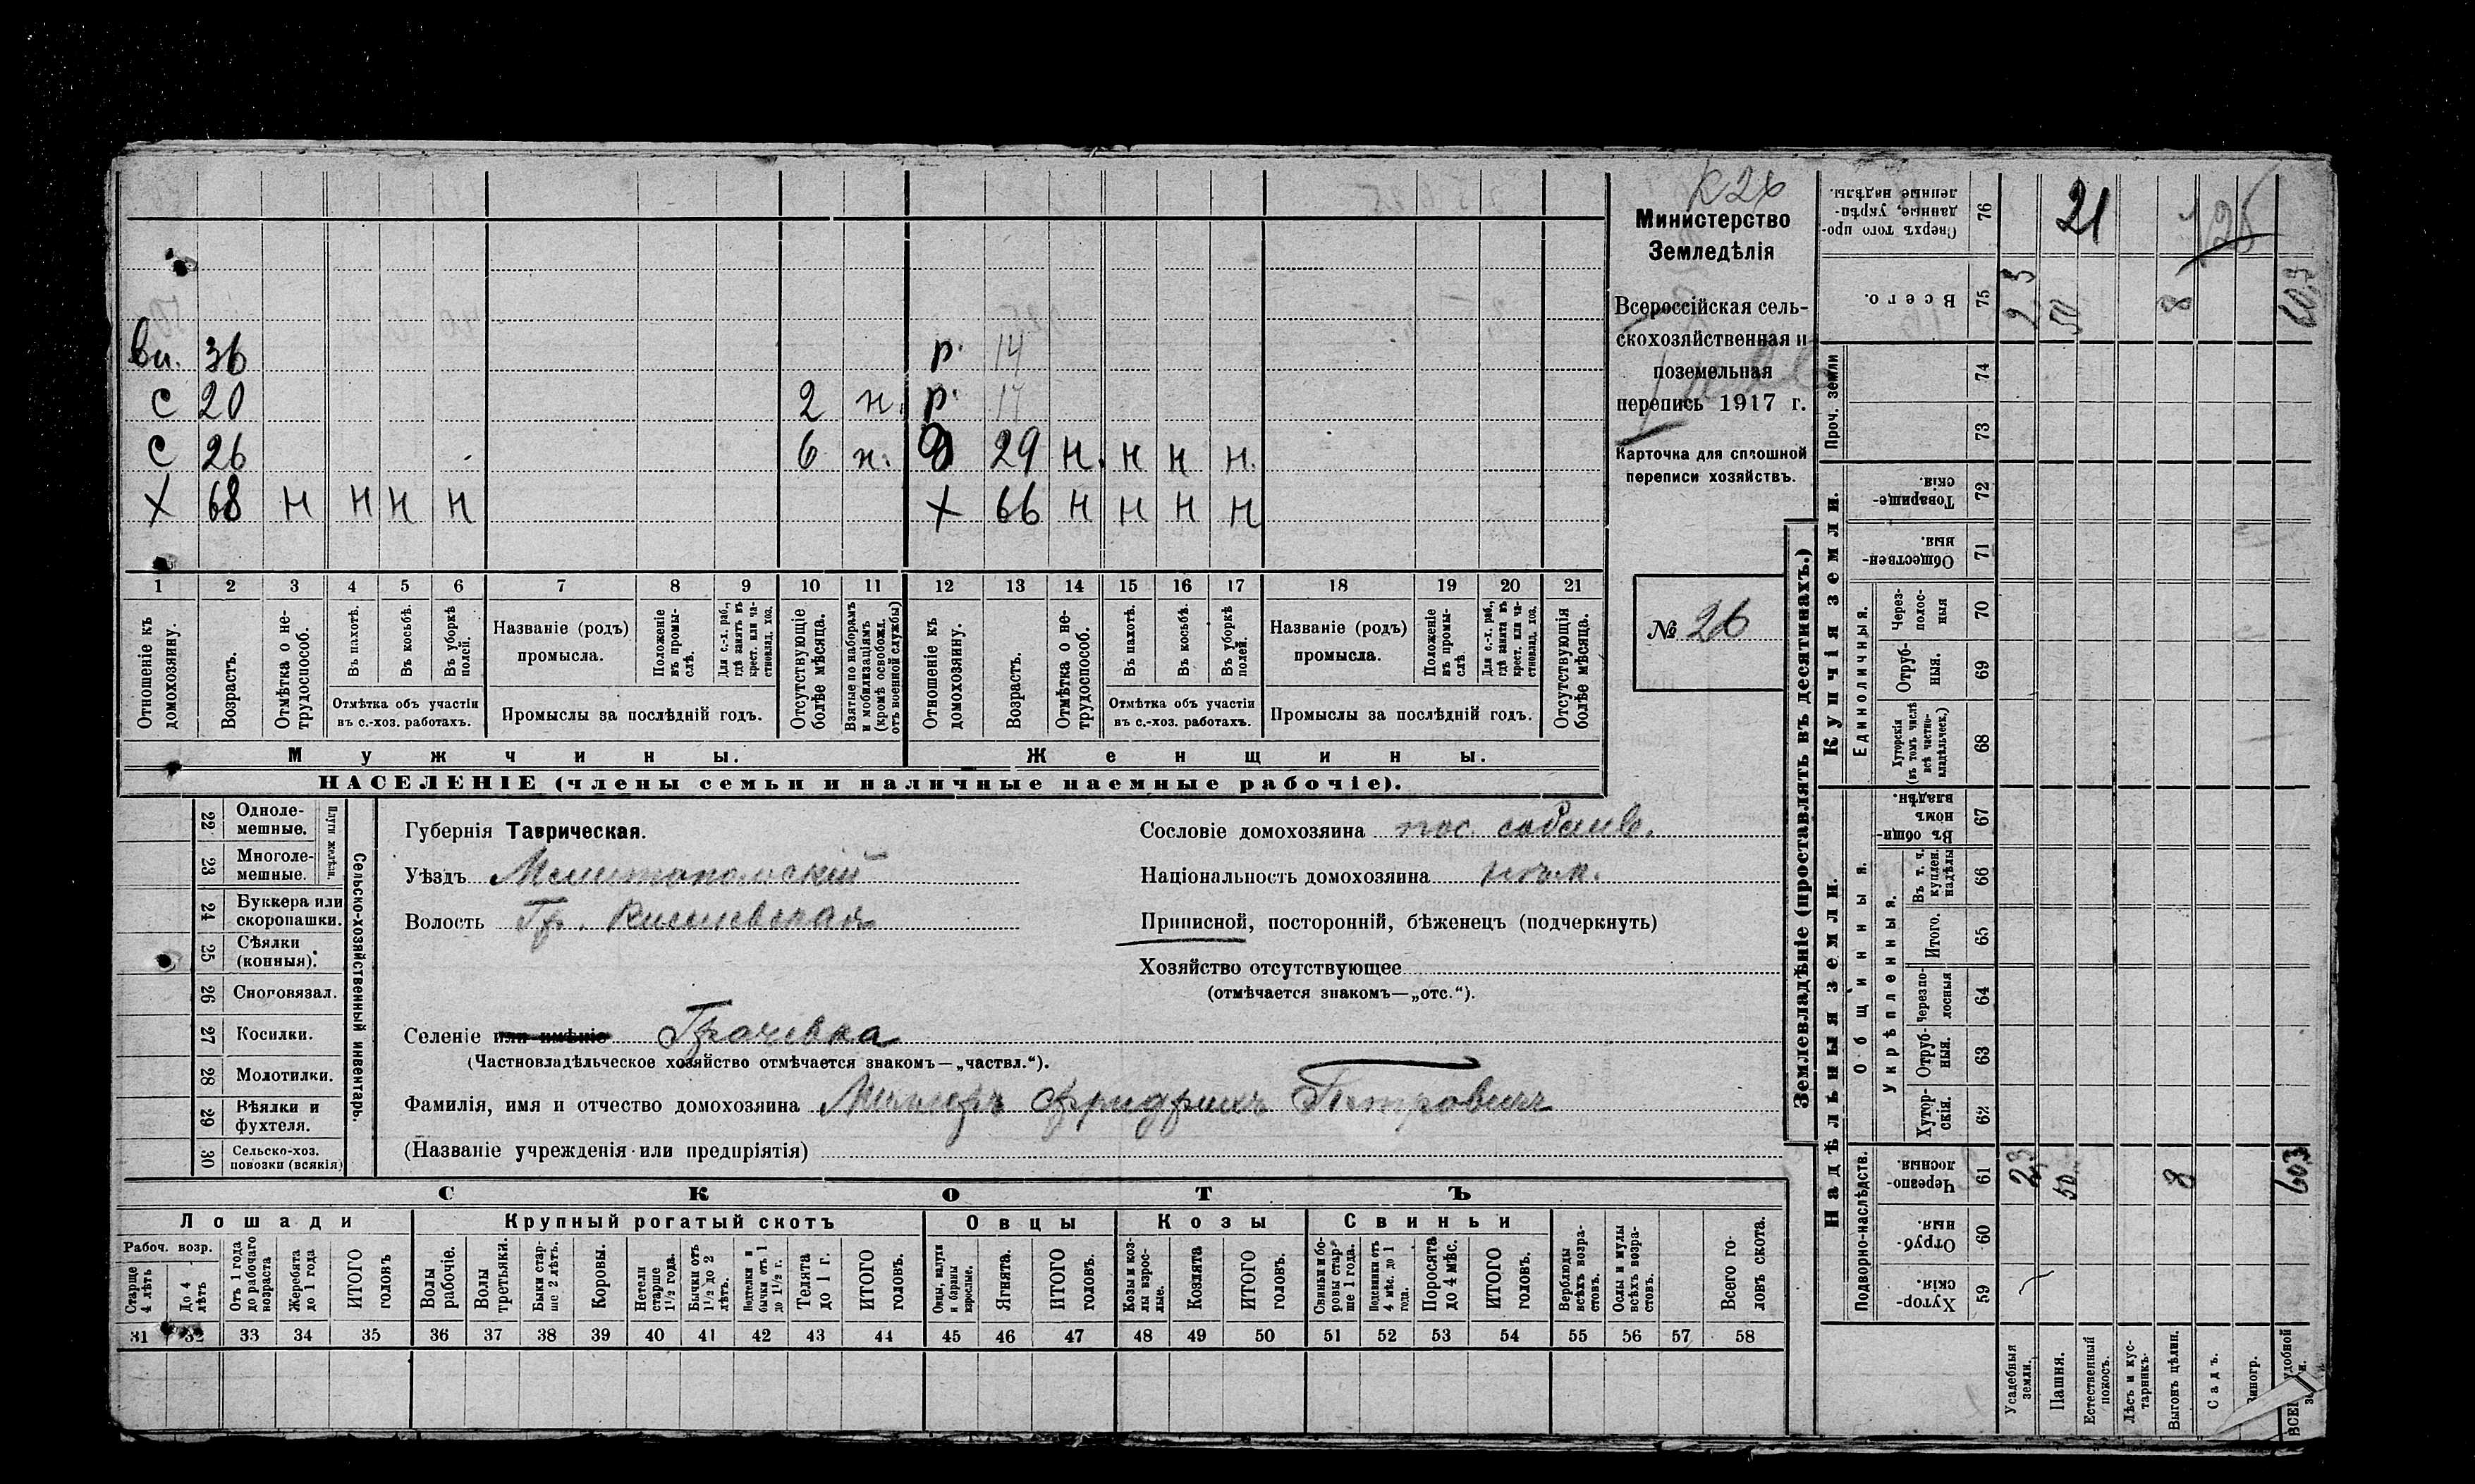 К 26
Министерство
Земледѣлія
Всероссійская сель-
скохозяйственная и
поземельная
перепись 1917 г.
Карточка для сплошной
переписи хозяйствъ.
№ 26
вн. 36 р. 14
с 20 2 н. р. 17
с 26 6 н. 29 н. н н н.
Х 68 н н н н Х 66 н н н н
1 2 3 4 5 6 7 8 9 10 11 12 13 14 15 16 17 18 19 20 21
Отношеніе къ домохозяину.
Возрастъ.
Отмѣтка о не-трудоспособ.
Въ пахотѣ.
Въ косьбѣ.
Въ уборкѣ полей.
Отмѣтка объ участіи
въ с.-хоз. работахъ.
Названіе (родъ)
промысла.
Положеніе въ промы-слѣ.
Для с.-х. раб., гдѣ занятъ въ крест. или ча-стновлад. хоз.
Промыслы за послѣдній годъ.
Отсутствующіе болѣе мѣсяца.
Взятые по наборамъ и мобилизаціямъ (кромѣ освобожд. отъ военной службы)
Отношеніе къ домохозяину.
Возрастъ.
Отмѣтка о не-трудоспособ.
Въ пахотѣ.
Въ косьбѣ.
Въ уборкѣ полей.
Отмѣтка объ участіи
въ с.-хоз. работахъ.
Названіе (родъ)
промысла.
Положеніе въ промы-слѣ
Для с.-х. раб., гдѣ занята въ крест. или ча-стновлад. хоз.
Промыслы за послѣдній годъ.
Отсутствующія болѣе мѣсяца.
Мужчины.
Женщины.
НАСЕЛЕНІЕ (члены семьи и наличные наемные рабочіе).
22 Одноле-мешные.
23 Многоле-мешные.
Плуги желѣзн.
24 Буккера или скоропашки.
25 Сѣялки (конныя).
26 Сноповязал.
27 Косилки.
28 Молотилки.
29 Вѣялки и фухтеля.
30 Сельско-хоз. повозки (всякія)
Сельско-хозяйственный инвентарь.
Губернія Таврическая.
Уѣздъ Мелитопольскій
Волость
Селеніе или имѣніе Грачевка
(Частновладѣльческое хозяйство отмѣчается знакомъ—„частвл.“).
Фамилія, имя и отчество домохозяина Фридрихъ Петровичъ
(Названіе учрежденія или предпріятія)
Сословіе домохозяина пос. собств.
Національность домохозяина нѣм.
Приписной, посторонній, бѣженецъ (подчеркнуть)
Хозяйство отсутствующее
(отмѣчается знакомъ—„отс.“).
СКОТЪ
Лошади
Рабоч. возр.
Старше 4 лѣтъ
До 4 лѣтъ
Отъ 1 года до рабочаго возраста
Жеребята до 1 года
ИТОГО головъ
Крупный рогатый скотъ
Волы рабочіе.
Волы третьяки.
Быки стар-ше 2 лѣтъ.
Коровы.
Нетели старше 1½ года.
Бычки отъ 1½ до 2 лѣтъ.
Подтелки и бычки отъ 1 до 1½ г.
Телята до 1 г.
ИТОГО головъ.
Овцы
Овцы, валухи и бараны взрослые.
Ягнята.
ИТОГО головъ.
Козы
Козы и коз-лы взрос-лые.
Козлята
ИТОГО головъ.
Свиньи
Свиньи и бо-ровы стар-ше 1 года.
Подсвинки отъ 4 мѣс. до 1 года.
Поросята до 4 мѣс.
ИТОГО головъ.
Верблюды всѣхъ возра-стовъ.
Ослы и мулы всѣхъ возра-стовъ.
Всего го-ловъ скота.
31 32 33 34 35 36 37 38 39 40 41 42 43 44 45 46 47 48 49 50 51 52 53 54 55 56 57 58
Землевладѣніе (проставлять въ десятинахъ.)
Надѣльныя земли.
Подворно-наслѣдств.
Хутор-скія. 59
Отруб-ныя. 60
Черезпо-лосныя. 61 2,3 50 8 60,3
Общинныя.
Укрѣпленныя.
Хутор-скія. 62
Отруб-ныя. 63
Черезпо-лосныя 64
Итого. 65
Въ т. ч. куплен. надѣлы 66
Въ общин-номъ владѣн. 67
Купчія земли.
Единоличныя.
Хуторскія (въ томъ числѣ всѣ частно-владѣльческ.) 68
Отруб-ныя. 69
Через-полос-ныя 70
Обществен-ныя. 71
Товарище-скія. 72
Проч. земли
73
74
Всего. 75 2,3 50 8 60,3
Сверхъ того про-данные, укрѣп-ленные надѣлы. 76 21
Усадебныя земли.
Пашня.
Естественный покосъ.
Лѣсъ и кус-тарникъ.
Выгонъ цѣлин.
Садъ.